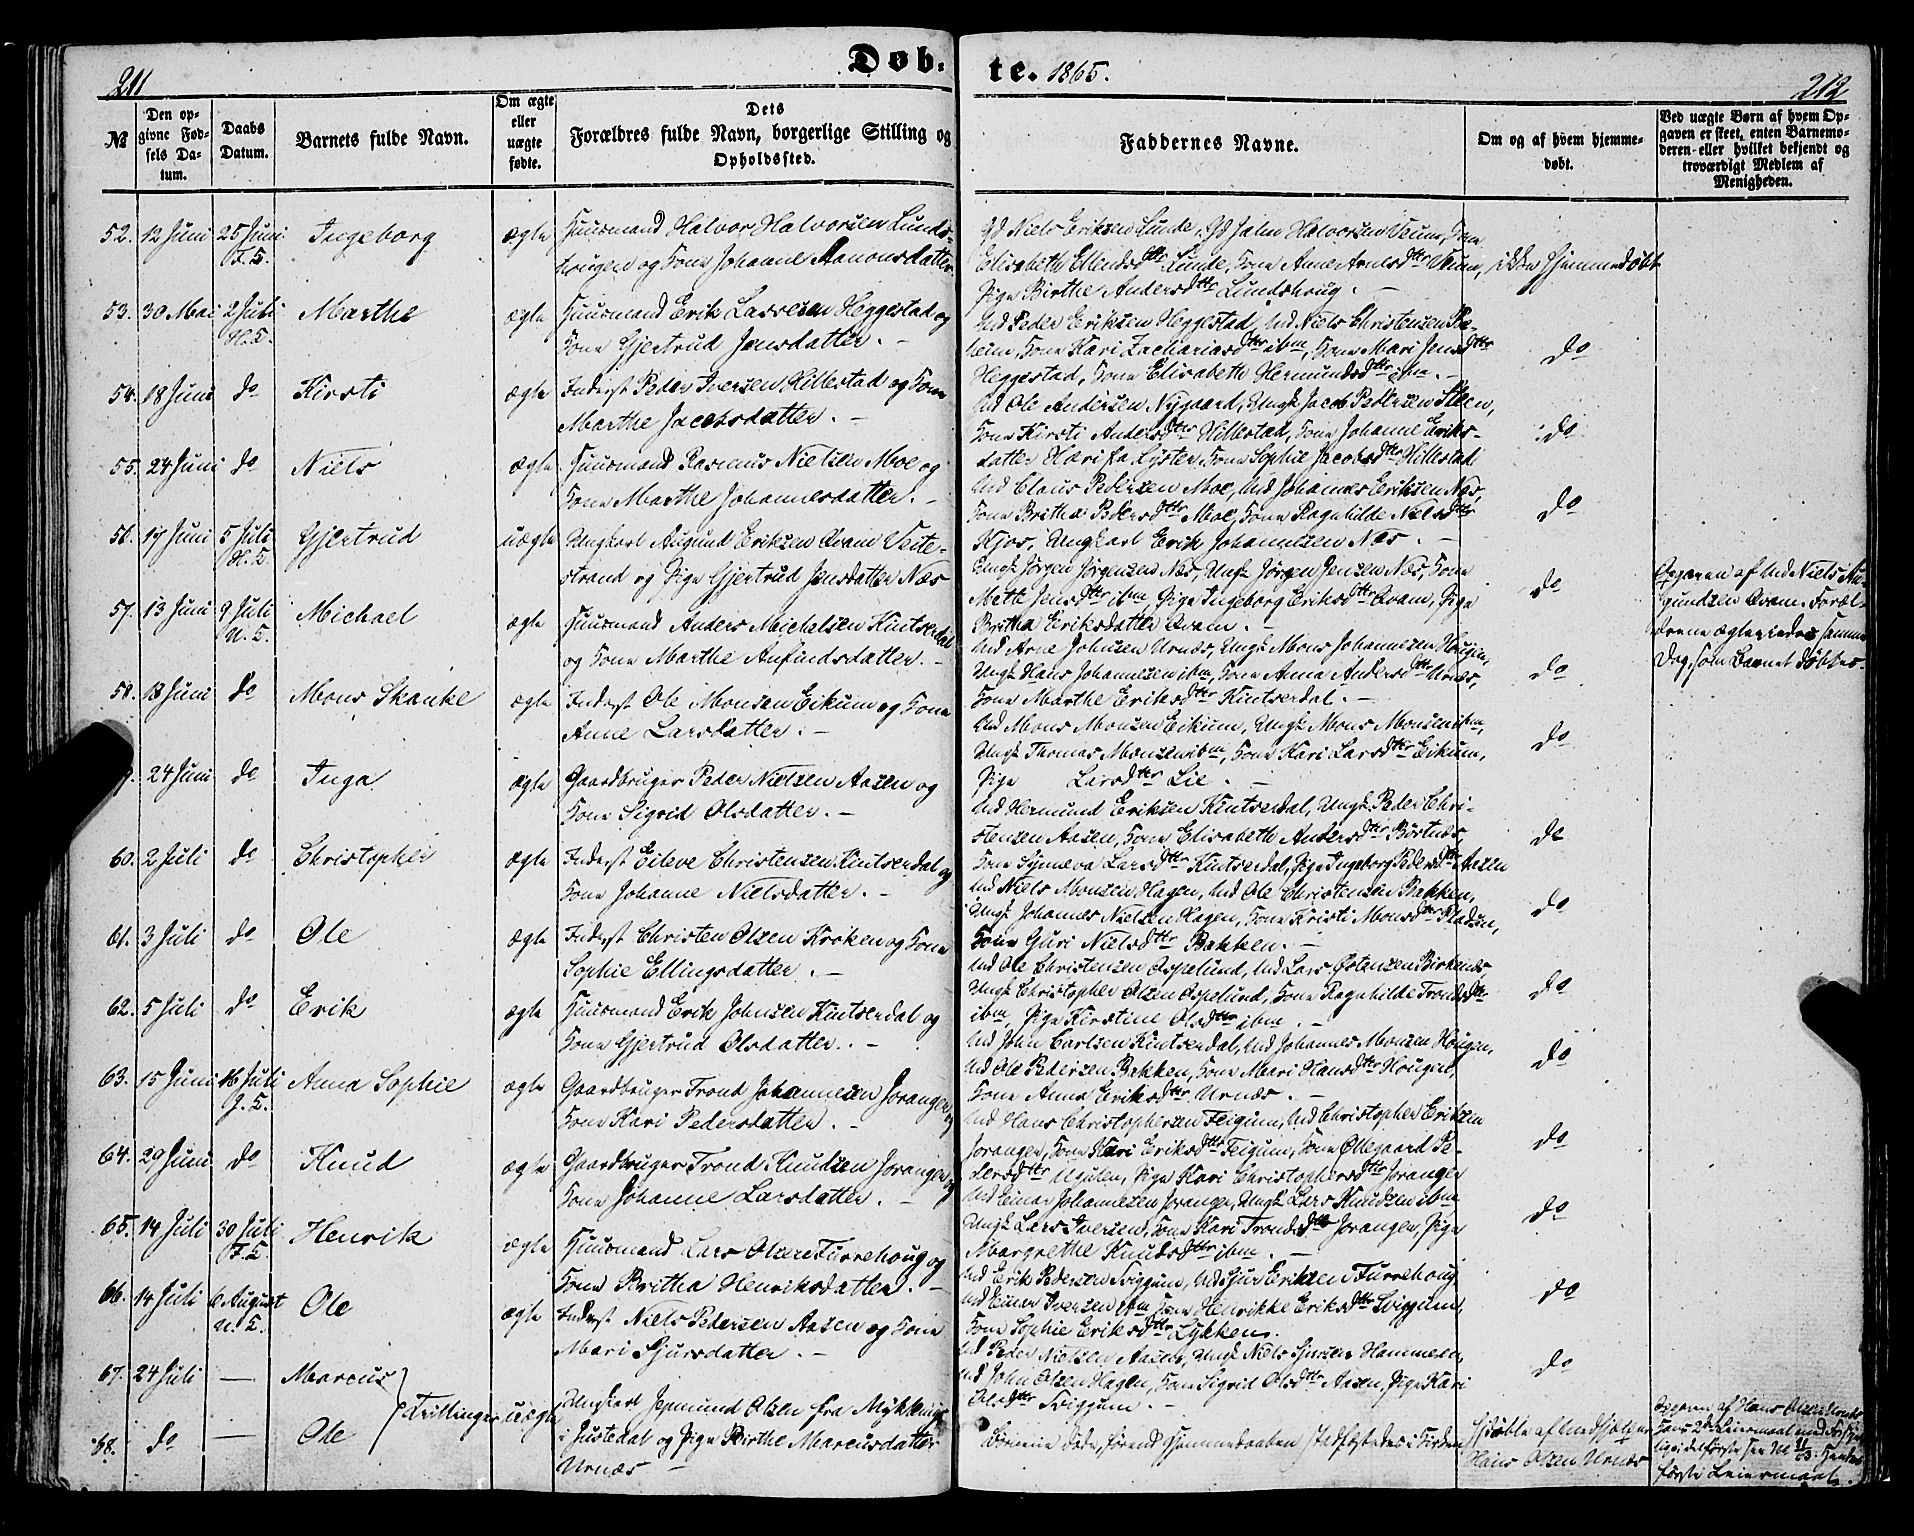 211
Døb-
te. 1865.
212
№
Den op-
givne Fød-
sels Da-
tum.
Daabs
Datum.
Barnets fulde Navn.
Om ægte
eller
uægte
fødte.
Dets
Forældres fulde Navn, borgerlige Stilling og
Opholdssted.
Faddernes Navne.
Om og af hvem hjemme-
døbt.
Ved uægte Børn af hvem Op-
gaven er skeet, enten Barnemo-
deren eller hvilket bekjendt og
troværdigt Medlem af
Menigheden.
52. 12 Juni 25 Juni Ingeborg ægte Huusmand Halvor Halvorsen Lunds-
F. K. hougen og Kone Johanne Aanonsdatter
Gd Niels Eriksen Lunde, Gd John Halvorsen Veum, Kone
Elisabeth Ellendsdttr Lunde, Kone Anne Arnesdttr Veum, ikke hjemmedøbt
Pige Birthe Andersdttr Lundshoug. –
53. 30 Mai 2 Juli Marthe ægte Huusmand Erik Lassesen Heggestad og
H. K. Kone Gjertrud Jensdatter. –
Md Peder Eriksen Heggestad, Md Niels Christensen
Kone Kari Zachariasdttr ibm, Kone Mari Jensdttr do
Heggestad, Kone Elisabeth Hermundsdttr ibm. –
54. 18 Juni do Kirsti ægte Inderst Peder Iversen Hillestad og Kone
Marthe Jacobsdatter. –
Md Ole Andersen Nygaard, Ungk. Jacob Pedersen Steen,
Kone Kirsti Andersdttr Hillestad, Kone Johanne Eriks- do
datter Lyster, Kone Sophie Jacobsdttr Hillestad
55. 24 Juni do Niels ægte Huusmand Rasmus Nielsen Moe og
Kone Marthe Johannesdatter. –
Md Claus Pedersen Moe, Md Johannes Eriksen Næs,
Kone Britha Pedersdttr Moe, Kone Ragnhilde Nielsdttr do
Kjos, Ungkarl Erik Johannesen Næs. –
56. 17 Juni 5 Juli Gjertrud uægte Ungkarl Augund Eriksen Qvam Veite-
H. K. strand og Pige Gjertrud Jensdatter Næs
Ungk. Jørgen Jørgensen Næs, Ungk. Jørgen Jensen Næs, Kone
Mette Jensdttr ibm, Pige Ingeborg Eriksdttr Qvam, Pige do
Britha Eriksdatter Qvam. –
Opgaven af Md Niels Au-
gundsen Qvam. Foræl-
drene ægteviedes samme
Dag, som Barnet døbtes.
57. 13 Juni 9 Juli Michael ægte Huusmand Anders Michelsen Kintserdal
U. K. og Kone Marthe Anfindsdatter. –
Md Arne Johnsen Urnæs, Ungk. Mons Johannesen Hougen,
Ungk. Hans Johannesen ibm, Kone Anna Andersdttr Urnæs, do
Kone Marthe Eriksdttr Kintserdal. –
58. 13 Juni do Mons Skanke ægte Inderst Ole Monsen Eikum og Kone
Anne Larsdatter. –
Md Mons Monsen Eikum, Ungk. Mons Monsen ibm,
Ungk. Thomas Monsen ibm, Kone Kari Larsdttr Eikum, do
Pige Larsdttr Lie. –
24 Juni do Inga ægte Gaardbruger Peder Nielsen Aasen og
Kone Sigrid Olsdatter. –
Md Hermund Eriksen Kintserdal, Ungk. Peder Chri-
stensen Aasen, Kone Elisabeth Andersdttr Børtnæs, do
Kone Synneva Larsdttr Kintserdal, Pige Ingeborg Pedersdttr Aasen
60. 2 Juli do Christopher ægte Inderst Eileve Christensen Kintserdal og
Kone Johanne Nielsdatter. –
Md Niels Monsen Hagen, Md Ole Christensen Bakken,
Ungk. Johannes Nielsen Hagen, Kone Kristi Monsdttr Pladsen, do
Kone Guri Nielsdttr Bakken. –
61. 3 Juli do Ole ægte Inderst Christen Olsen Kroken og Kone
Sophie Ellingsdatter. –
Md Ole Christensen Aspelund, Md Lars Østensen Birkenæs,
Ungk. Christopher Olsen Aspelund, Kone Ragnhilde Trondsdttr do
ibm, Pige Kirstine Olsdttr ibm. –
62. 5 Juli do Erik ægte Huusmand Erik Johnsen Kintserdal og
Kone Gjertrud Olsdatter. –
Md John Carlsen Kintserdal, Md Johannes Monsen Hougen,
Md Ole Pedersen Bakken, Kone Mari Hansdttr Hougen, do
Kone Anne Eriksdttr Urnæs. –
63. 15 Juni 16 Juli Anna Sophie ægte Gaardbruger Trond Johannesen Joranger og
J. K. Kone Kari Pedersdatter. –
Md Hans Christophersen Feigum, Md Christopher Eriksen
Joranger, Kone Kari Eriksdttr Feigum, Kone Ollegaard Pe- do
dersdttr Ugulen, Pige Kari Christophersdttr Joranger
64. 29 Juni do Knud ægte Gaardbruger Trond Knudsen Joranger og
Kone Johanne Larsdatter. –
Md Einar Johannesen Joranger, Ungk. Lars Knudsen ibm
Ungk. Lars Iversen, Kone Kari Trondsdttr Joranger, Pige do
Margrethe Knudsdttr ibm. –
65. 14 Juli 30 Juli Henrik ægte Huusmand Lars Olsen Furrehoug og
F. K. Kone Britha Henriksdatter. –
Md Erik Pedersen Sviggum, Md Gjur Eriksen Furrehoug
Md Einar Iversen ibm, Kone Henrikke Eriksdttr Sviggum, do
Kone Sophie Eriksdttr Lykken.
66. 14 Juli 6 August Ole ægte Inderst Niels Pedersen Aasen og Kone
U. K. Mari Sjursdatter. –
Md Peder Nielsen Aasen, Ungk. Niels Sjursen Hammeren,
Md John Olsen Hagen, Kone Sigrid Olsdttr Aasen, Pige Kari do
Olsdttr Sviggum. –
67. 24 Juli — Marcus
Tvillinger uægte Ungkarl Jepmund Olsen fra Mykkelmyr
68. do — Ole
i Justedal og Pige Birthe Marcusdatter
Urnæs —
Børnene døde, førend Hjemmedaaben stadfæstedes i Kirken
Hjdøbte af Medhjælper
Hans Olsen Urnæs
Opgaven af Hans Olsen Urnæs
Hans 2det Leiermaal
første Leiermaal.